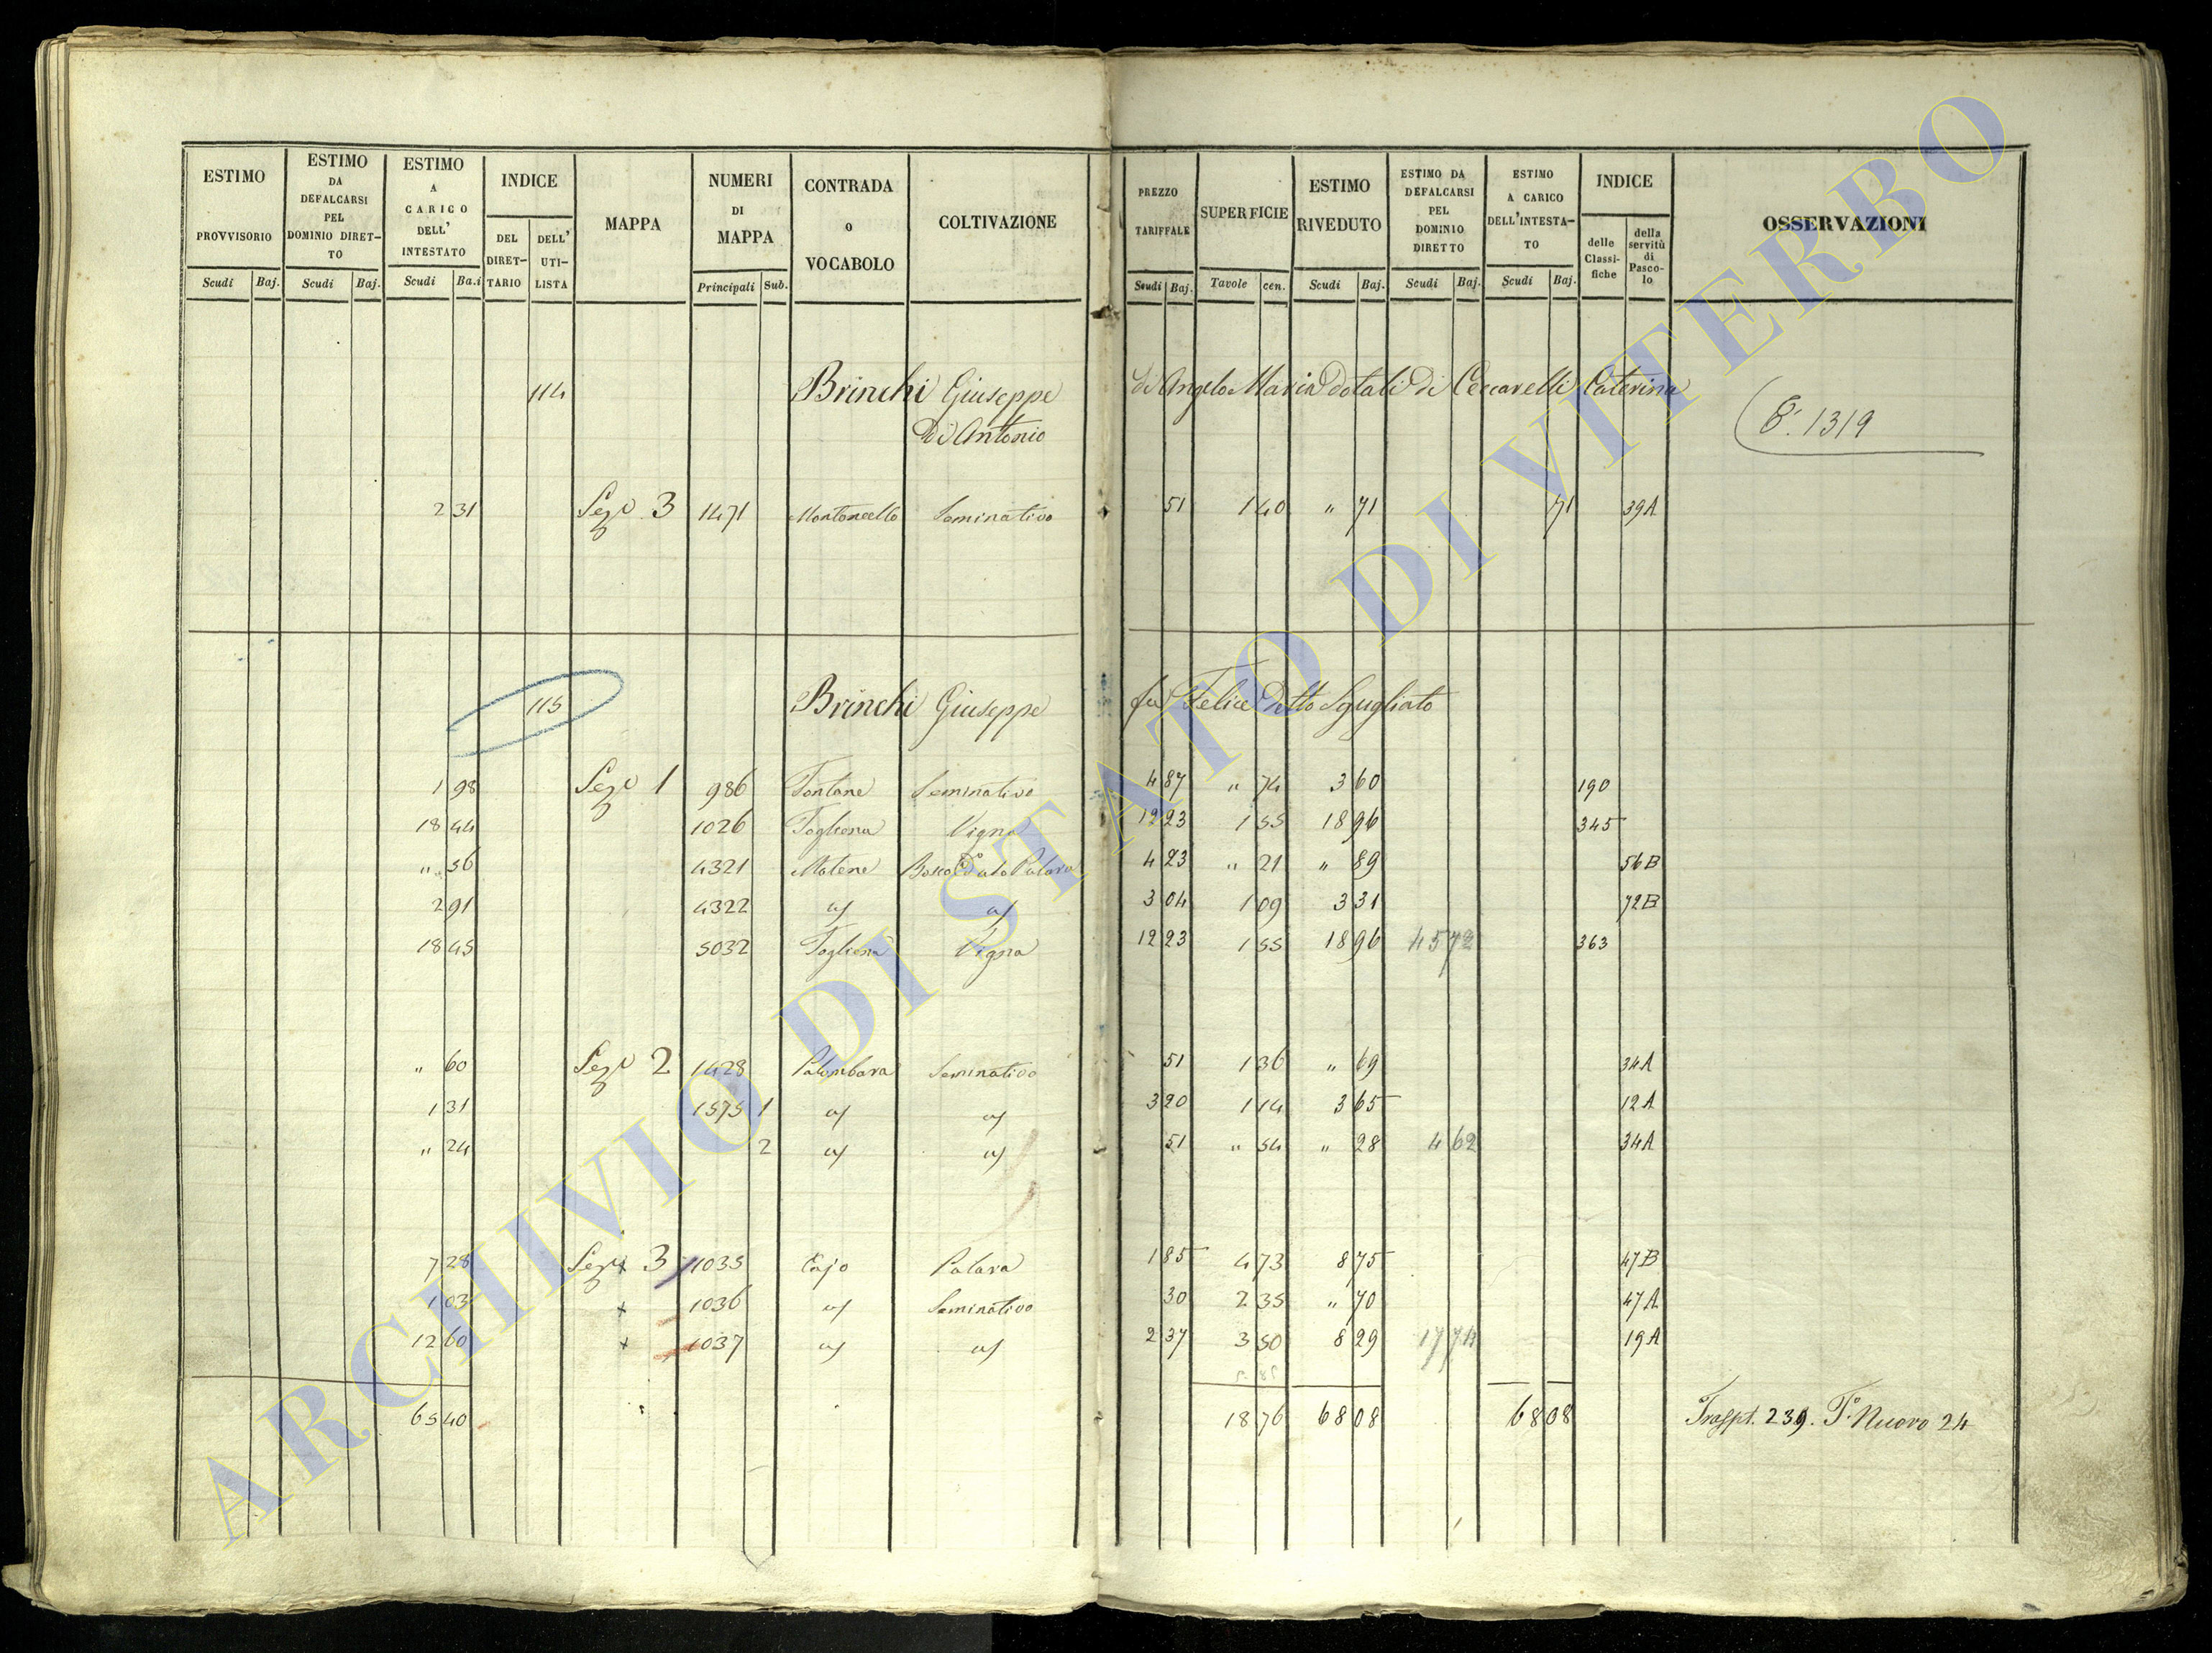 ESTIMO PROVVISORIO Scudi Baj.
ESTIMO DA DEFALCARSI PEL DOMINIO DIRET-TO Scudi Baj.
ESTIMO A CARICO DELL' INTESTATO Scudi Ba.i
INDICE DEL DIRET-TARIO DELL' UTI-LISTA
MAPPA
NUMERI DI MAPPA Principali Sub.
CONTRADA o VOCABOLO
COLTIVAZIONE
PREZZO TARIFFALE Scudi Baj.
SUPERFICIE Tavole cen.
ESTIMO RIVEDUTO Scudi Baj.
ESTIMO DA DEFALCARSI PEL DOMINIO DIRETTO Scudi Baj.
ESTIMO A CARICO DELL'INTESTA-TO Scudi Baj.
INDICE delle Classi-fiche della servitù di Pasco-lo
OSSERVAZIONI
114 Brinchi Giuseppe di Angelo Maria dotali di Ceccarelli Caterina
di Antonio
1319
2 31 Seze 3 1471 Montoncello Seminativo 51 1 40 " 71 71 39A
115 Brinchi Giuseppe fu Felice detto Sgugliato
1 98 Seze 1 986 Fontane Seminativo 4 87 " 74 3 60 190
18 44 1026 Fogliena Vigna 12 23 1 55 18 96 345
" 56 4321 Matene Bosco Palara 4 23 " 21 " 89 56B
2 91 4322 3 04 1 09 3 31 72B
18 45 5032 Fogliena Vigna 12 23 1 55 18 96 45 72 363
" 60 Seze 2 1428 Palombara Seminativo 51 1 36 " 69 34A
1 31 1575 1 3 20 1 14 3 65 12A
" 24 2 51 " 54 " 28 4 62 34A
7 28 Sez 3 1035 Cajo Palara 1 85 4 73 8 75 47B
1 03 x 1036 Seminativo 30 2 35 " 70 47A
12 60 x 1037 2 37 3 50 8 29 17 74 19A
65 40 18 76 68 08 68 08 Traspt. 239. To. Nuovo 24
ARCHIVIO DI STATO DI VITERBO